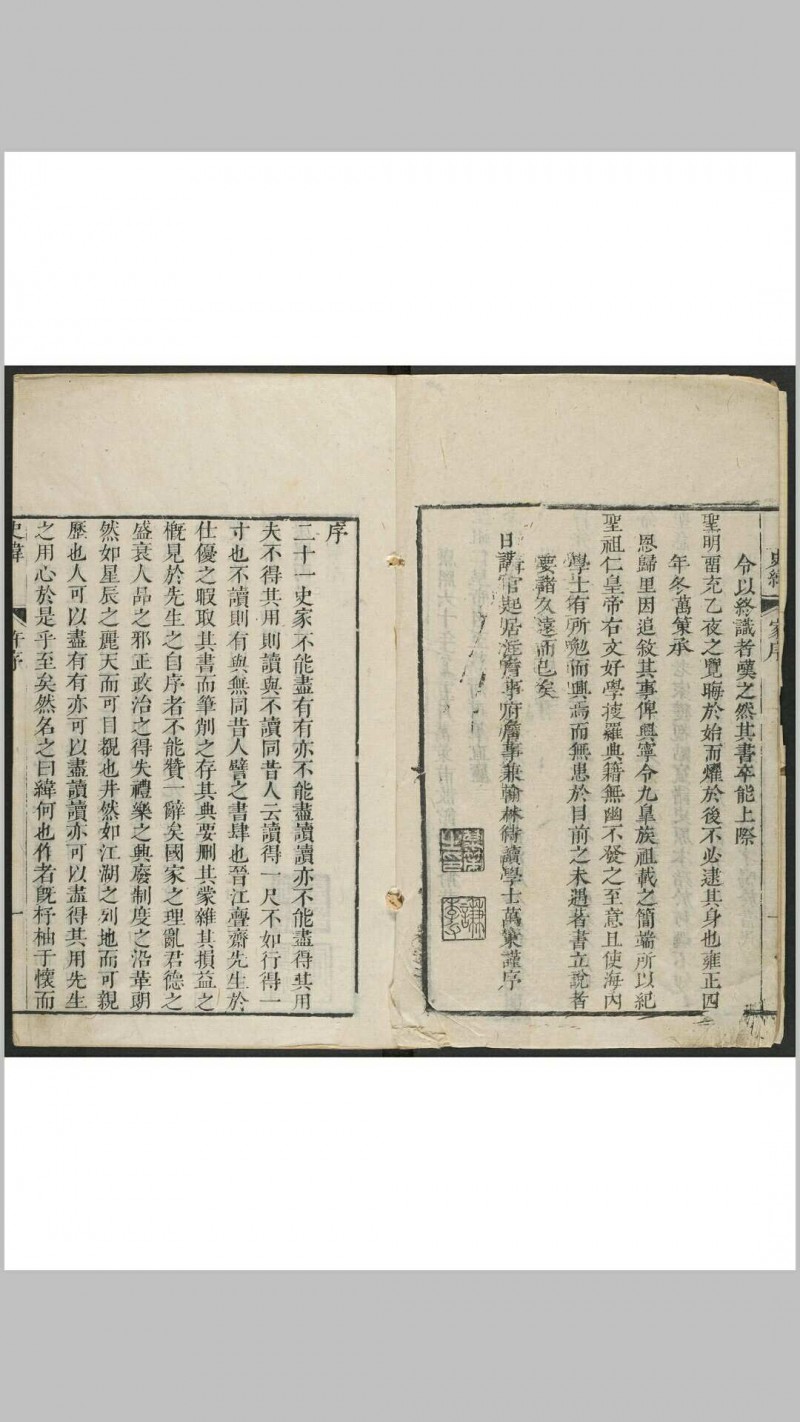 史緯 家序
令以終識者嘆之然其書卒能上際
聖明畱充乙夜之覽晦於始而燿於後不必逮其身也雍正四
年冬萬策承
恩歸里因追敘其事俾興寧令九臯族祖載之簡端所以紀
聖祖仁皇帝右文好學搜羅典籍無幽不發之至意且使海內
學士有所勉而興焉而無患於目前之未遇著書立說者
要諸久遠而已矣
日講官起居注詹事府詹事兼翰林侍讀學士萬策謹序
序
二十一史家不能盡有有亦不能盡讀讀亦不能盡得其用
夫不得其用則讀與不讀同昔人云讀得一尺不如行得一
寸也不讀則有與無同昔人譬之書肆也晉江聲齋先生於
仕優之暇取其書而筆削之存其典要刪其蒙雜其損益之
槪見於先生之自序者不能贊一辭矣國家之理亂君德之
盛衰人品之邪正政治之得失禮樂之興廢制度之沿革朗
然如星辰之麗天而可目覩也井然如江湖之列地而可親
歷也人可以盡有有亦可以盡讀讀亦可以盡得其用先生
之用心於是乎至矣然名之曰緯何也作者旣杼柚于懷而
史緯 許序 一